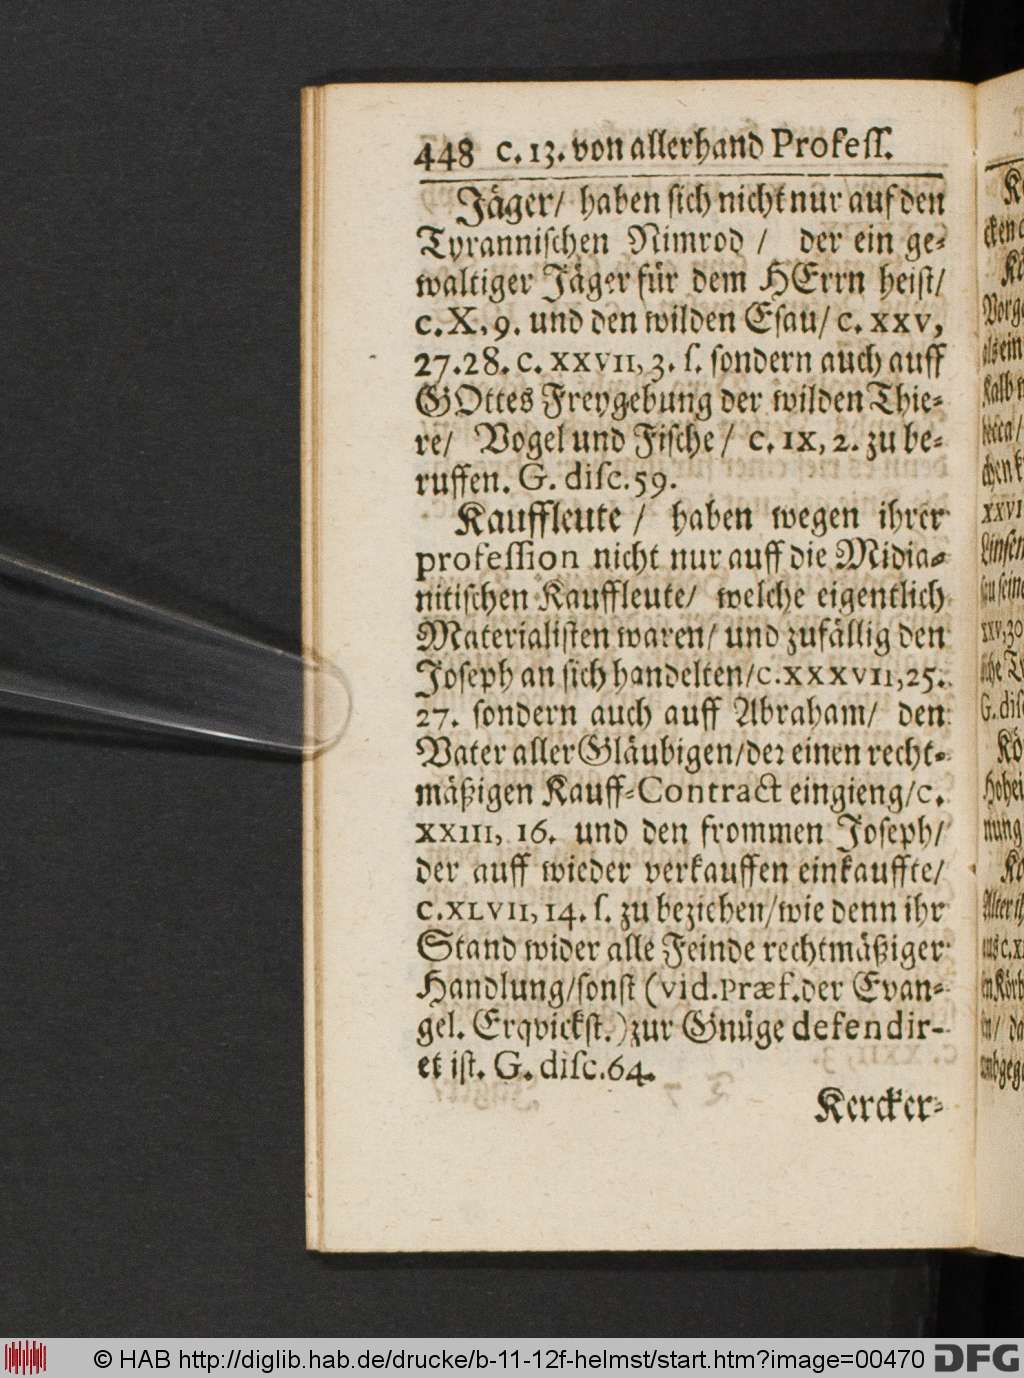 448 c. 13. von allerhand Profess.
Jäger/ haben sich nicht nur auf den
Tyrannischen Nimrod / der ein ge-
waltiger Jäger für dem HErrn heist/
c. X, 9. und den wilden Esau/ c. XXV,
27. 28. c. XXVII, 3. s. sondern auch auff
GOttes Freygebung der wilden Thie-
re/ Vogel und Fische / c. IX, 2. zu be-
ruffen. G. disc. 59.
Kauffleute / haben wegen ihrer
profession nicht nur auff die Midia-
nitischen Kauffleute/ welche eigentlich
Materialisten waren/ und zufällig den
Joseph an sich handelten/ c. XXXVII, 25.
27. sondern auch auff Abraham/ den
Vater aller Gläubigen/ der einen recht-
mäßigen Kauff-Contract eingieng/ c.
XXIII, 16. und den frommen Joseph/
der auff wieder verkauffen einkauffte/
c. XLVII, 14. s. zu beziehen/ wie denn ihr
Stand wider alle Feinde rechtmäßiger
Handlung/ sonst (vid. Præf. der Evan-
gel. Erqvickst.) zur Gnüge defendir-
et ist. G. disc. 64.
Kercker-
© HAB http://diglib.hab.de/drucke/b-11-12f-helmst/start.htm?image=00470 DFG